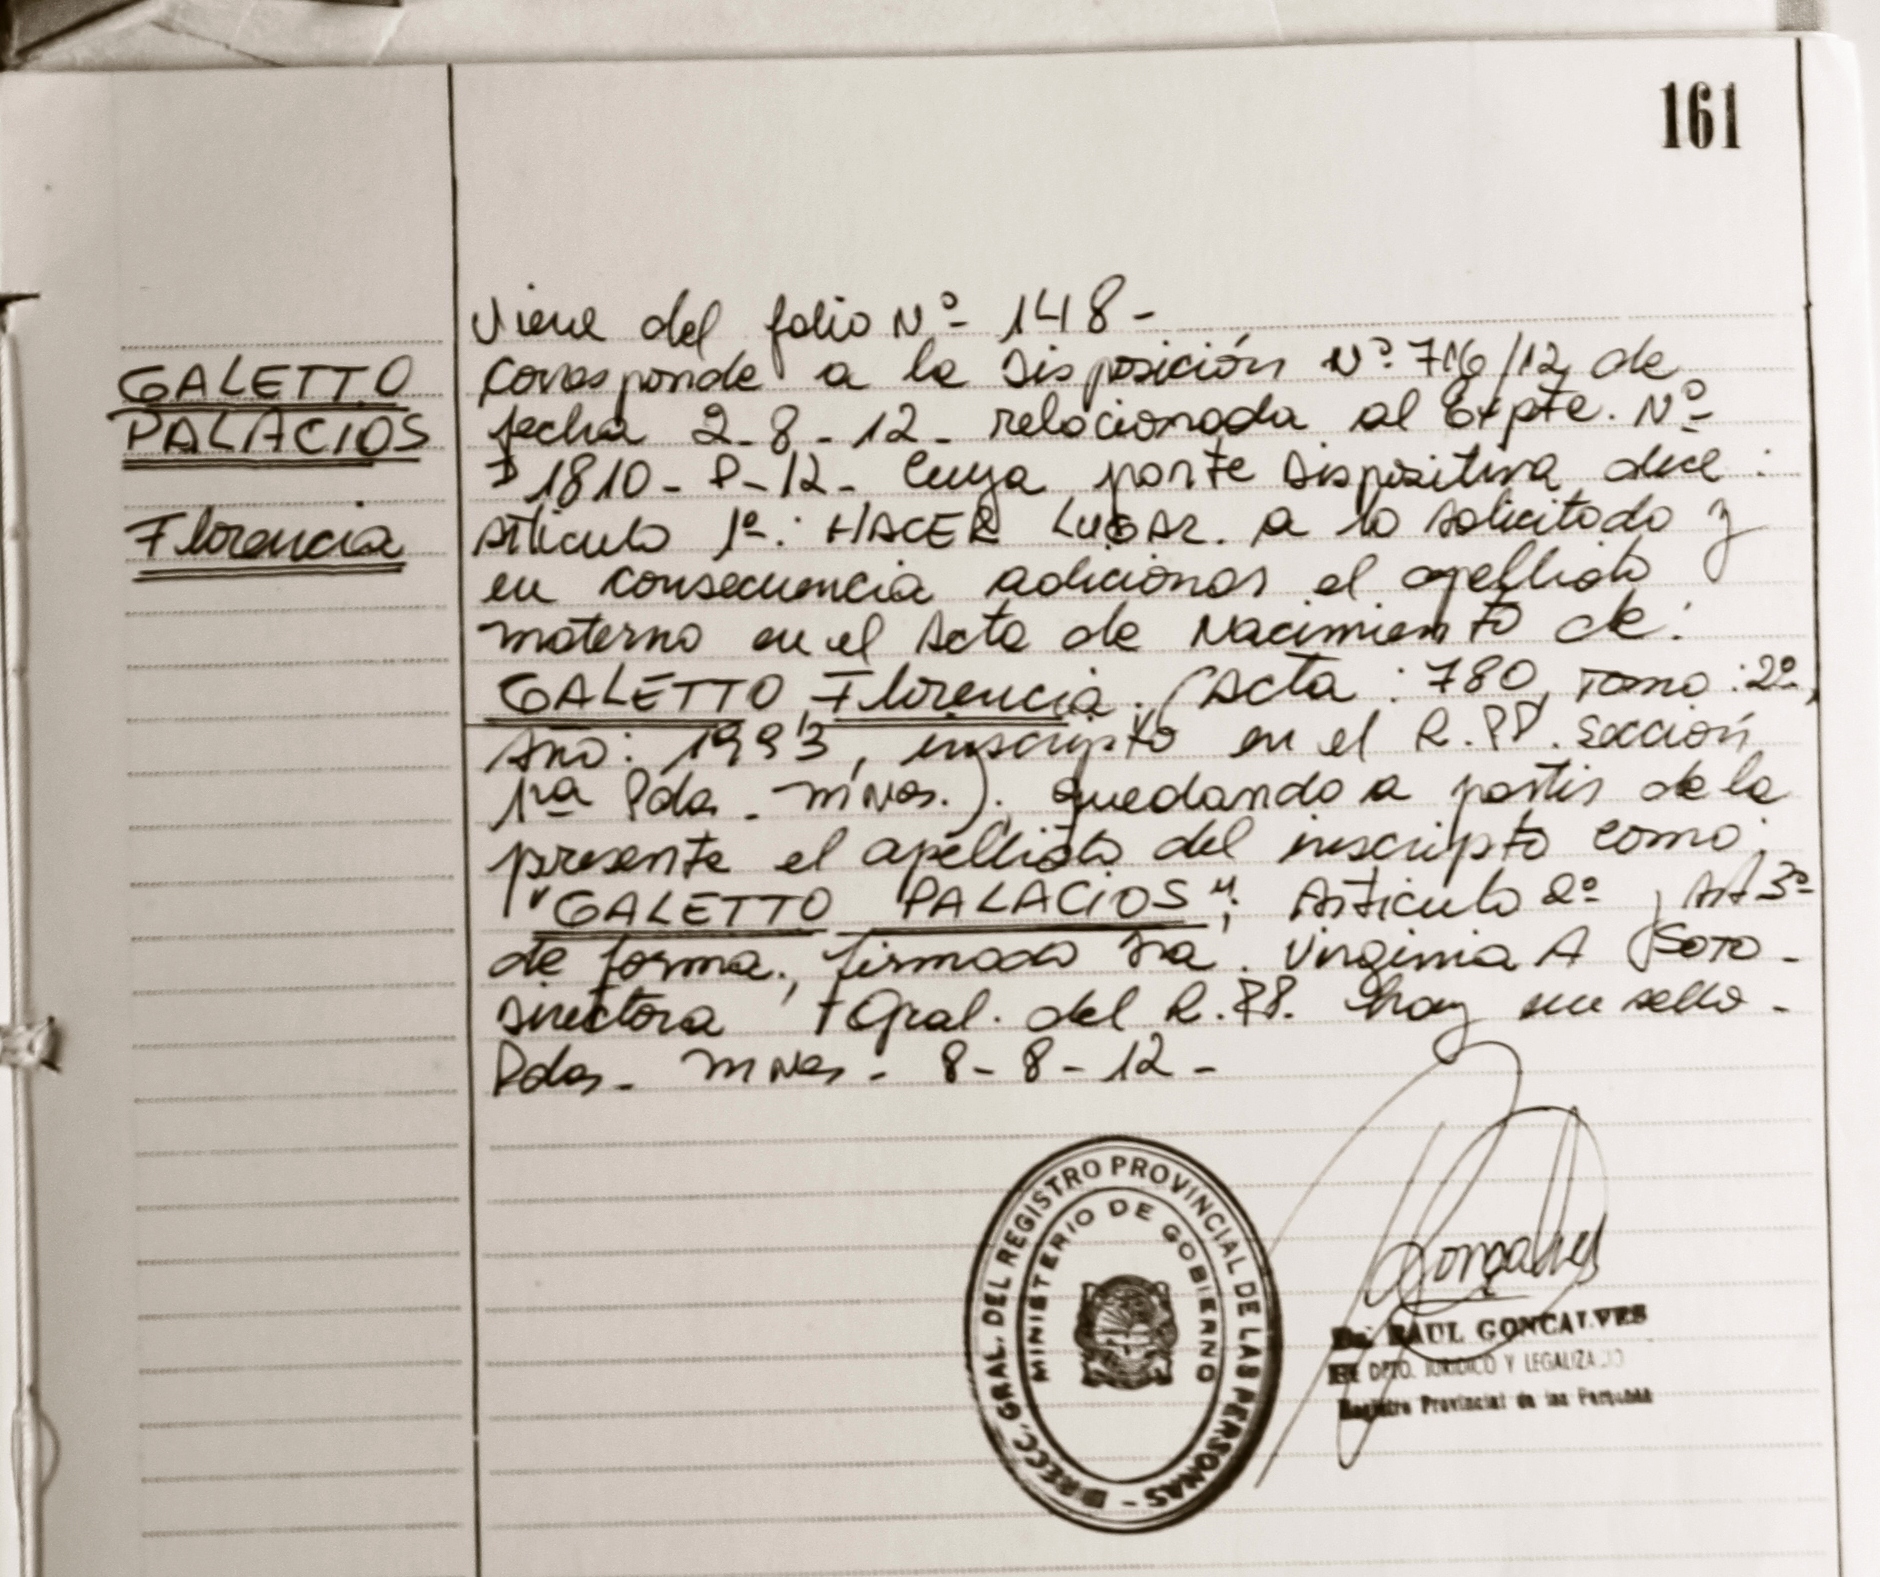 161
Viene del folio Nº 148-
GALETTO
PALACIOS
Florencia
Corresponde a la Disposición Nº 716/12 de
fecha 2-8-12- relacionada al Expte. Nº
1810-P-12- Cuya parte Dispositiva dice:
Artículo 1º: HACER LUGAR. a lo solicitado y
en consecuencia adicionar el apellido
materno en el Acta de Nacimiento de:
GALETTO Florencia. (Acta: 780, Tomo: 2º,
Año: 1993, inscripto en el R.PP. Sección
1ra Pdas. mNes.). quedando a partir de la
presente el apellido del inscripto como:
"GALETTO PALACIOS"; Artículo 2º, Art 3º
de forma., firmado Sra. Virginia A Soto-
Directora Gral. del R.PP. hay un sello-
Pdas- mNes- 8-8-12-
DIRECC. GRAL. DEL REGISTRO PROVINCIAL DE LAS PERSONAS -
MINISTERIO DE GOBIERNO
Goncalves
Dr. RAUL GONCALVES
DPTO. JURIDICO Y LEGALIZA
Registro Provincial de las Personas